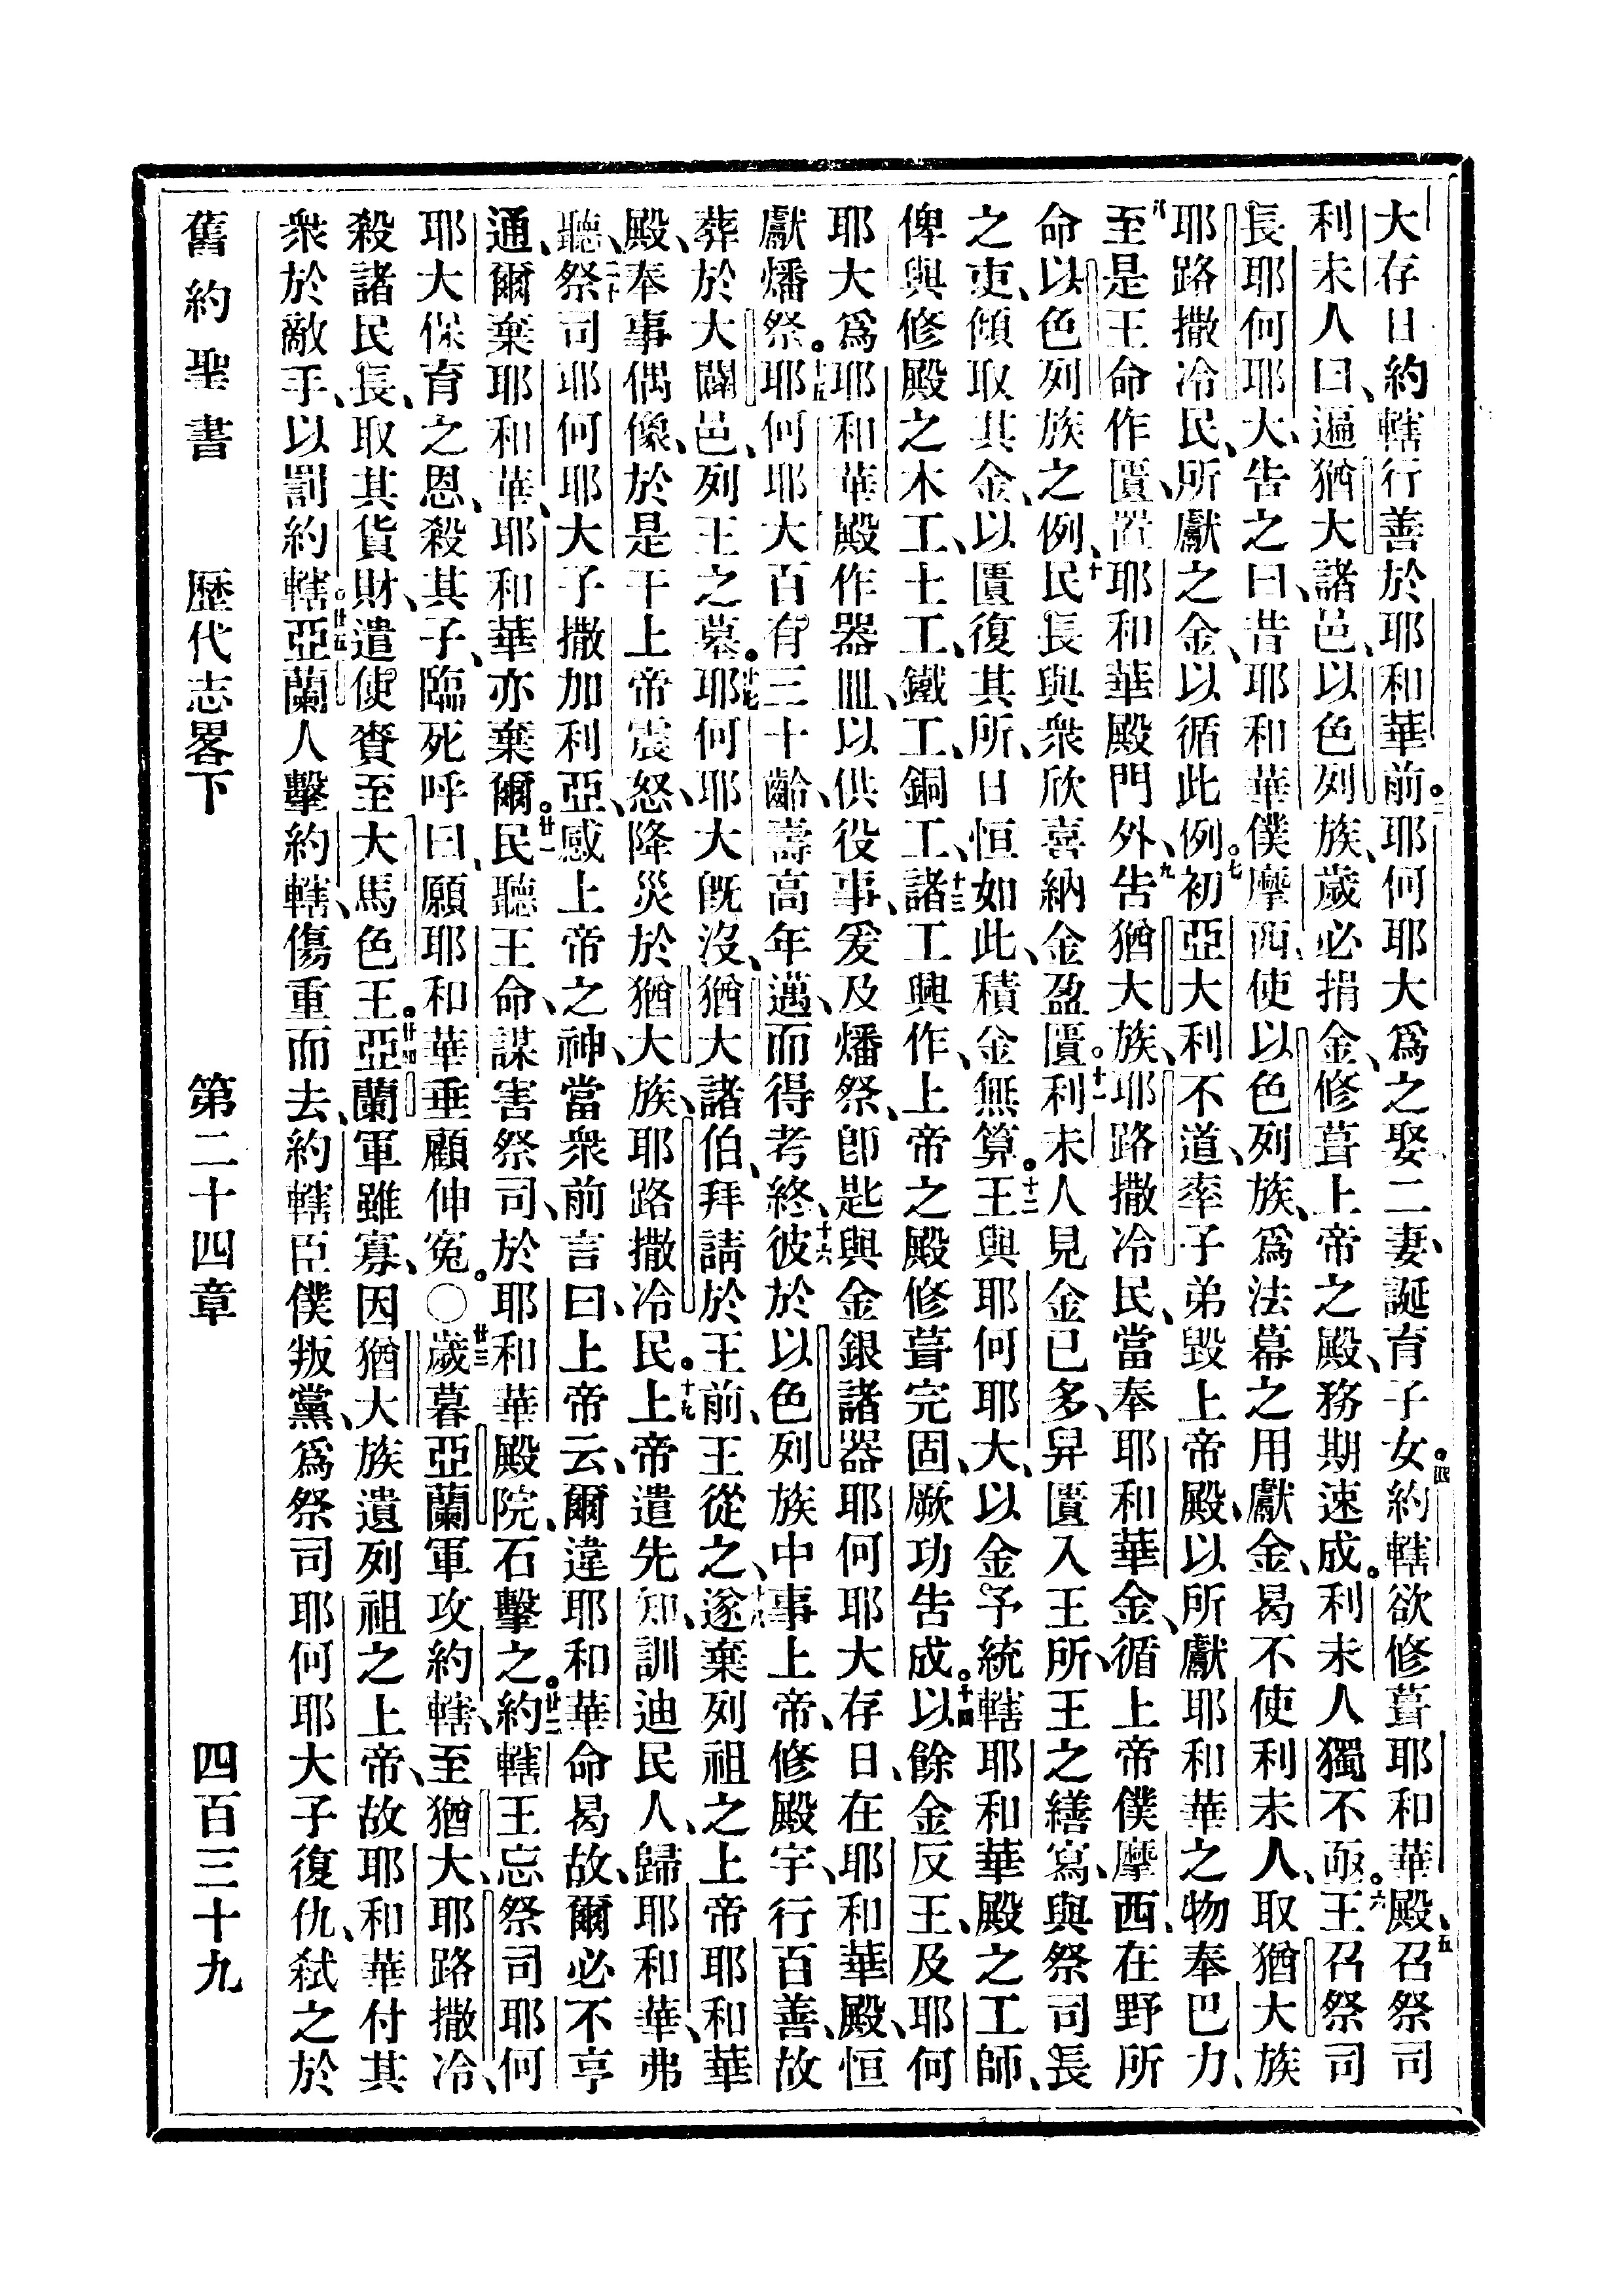 大存日約轄行善於耶和華前。三耶何耶大爲之娶二妻、誕育子女。四約轄欲修葺耶和華殿、五召祭司
利未人曰、遍猶大諸邑、以色列族、歲必捐金、修葺上帝之殿、務期速成。利未人獨不亟。六王召祭司
長耶何耶大、告之曰、昔耶和華僕摩西、使以色列族、爲法幕之用獻金、曷不使利未人、取猶大族
耶路撒冷民、所獻之金、以循此例。七初亞大利不道、率子弟毀上帝殿、以所獻耶和華之物奉巴力、
八至是王命作匱、置耶和華殿門外、九告猶大族、耶路撒冷民、當奉耶和華金、循上帝僕摩西、在野所
命以色列族之例、十民長與衆欣喜納金盈匱。十一利未人見金已多、舁匱入王所、王之繕寫、與祭司長
之吏、傾取其金、以匱復其所、日恒如此、積金無算。十二王與耶何耶大、以金予統轄耶和華殿之工師、
俾與修殿之木工、土工、鐵工、銅工、十三諸工興作、上帝之殿修葺完固、厥功告成。十四以餘金反王、及耶何
耶大爲耶和華殿作器皿、以供役事、爰及燔祭、卽匙與金銀諸器、耶何耶大存日、在耶和華殿、恒
獻燔祭。十五耶何耶大百有三十齡、壽高年邁、而得考終、十六彼於以色列族中、事上帝、修殿宇、行百善、故
葬於大闢邑、列王之墓。十七耶何耶大旣沒、猶大諸伯、拜請於王前、王從之、十八遂棄列祖之上帝耶和華
殿、奉事偶像、於是干上帝震怒、降災於猶大族、耶路撒冷民。十九上帝遣先知、訓迪民人、歸耶和華、弗
聽、二十祭司耶何耶大子撒加利亞、感上帝之神、當衆前言曰、上帝云、爾違耶和華命曷故、爾必不亨
通、爾棄耶和華、耶和華亦棄爾。廿一民聽王命、謀害祭司、於耶和華殿院、石擊之。廿二約轄王忘祭司耶何
耶大保育之恩、殺其子、臨死呼曰、願耶和華垂顧伸寃。〇廿三歲暮亞蘭軍攻約轄、至猶大、耶路撒冷、
殺諸民長、取其貨財、遣使賚至大馬色王。廿四亞蘭軍雖寡、因猶大族遺列祖之上帝、故耶和華付其
衆於敵手、以罰約轄。廿五亞蘭人擊約轄、傷重而去、約轄臣僕叛黨、爲祭司耶何耶大子復仇、弑之於
舊約聖書　歷代志畧下　第二十四章　四百三十九